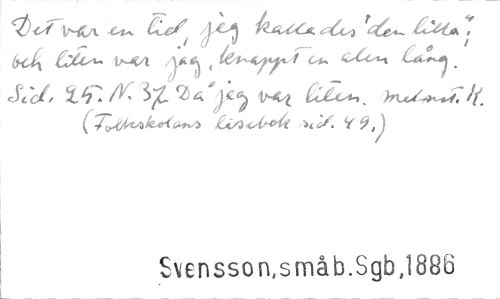 Det var en tid, jag kallades "den lilla",
och liten var jag, knappt en alen lång.
Sid. 25. N. 37 Då jag var liten. med not. K.
(Folkskolans läsebok sid. 49.)
Svensson, småb. Sgb, 1886